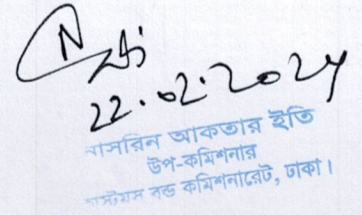 22.02.2024
নাসরিন আকতার ইতি
উপ-কমিশনার
কাস্টমস বন্ড কমিশনারেট, ঢাকা।